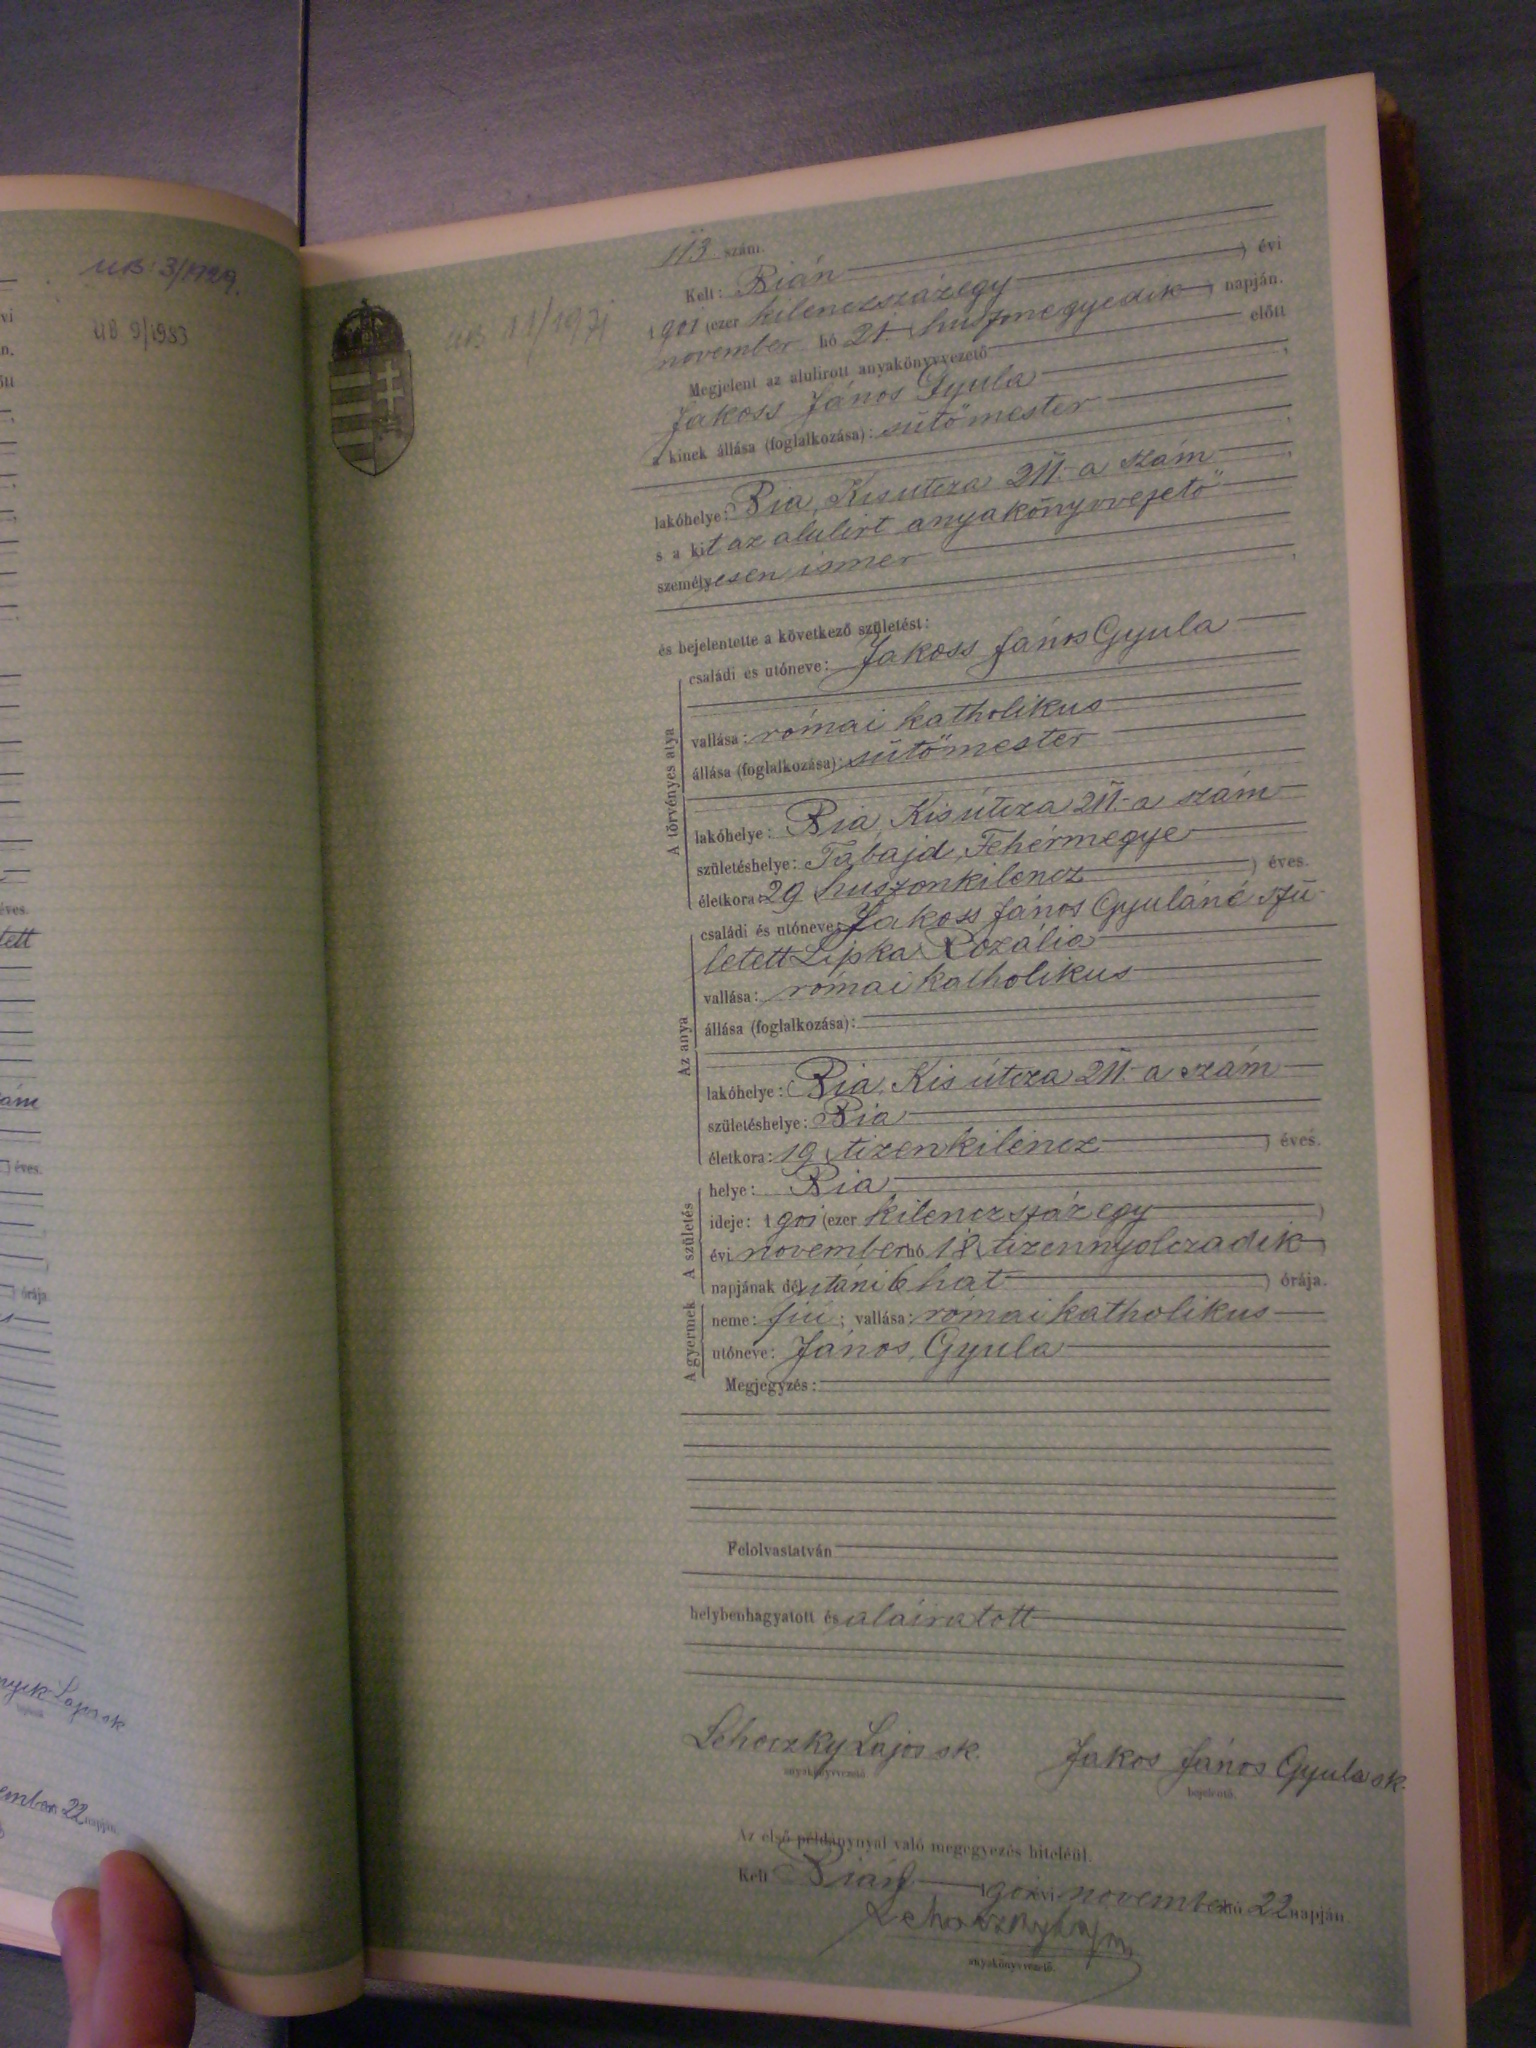 UB 3/1929.
UB 9/1983
UB 11/1971
113 szám.
Kelt: Bián
1901 (ezer kilenczszázegy) évi
november hó 21. (huszonegyedik) napján.
Megjelent az alulirott anyakönyvvezető előtt
Jakoss János Gyula
a kinek állása (foglalkozása): sütőmester
lakóhelye: Bia, Kis utcza 211.-a szám
s a kit az alulirt anyakönyvvezető
személyesen ismer
és bejelentette a következő születést:
A törvényes atya
családi és utóneve: Jakoss János Gyula
vallása: római katholikus
állása (foglalkozása): sütőmester
lakóhelye: Bia, Kis útcza 211.-a szám
születéshelye: Tabajd, Fehérmegye
életkora: 29 (huszonkilencz) éves.
Az anya
családi és utóneve: Jakoss János Gyuláné szü-
letett Lipka Rozália
vallása: római katholikus
állása (foglalkozása):
lakóhelye: Bia, Kis útcza 211.-a szám
születéshelye: Bia
életkora: 19 (tizenkilencz) éves.
A születés
helye: Bia
ideje: 1901 (ezer kilenczszázegy)
évi november hó 18 (tizennyolczadik)
napjának délutáni 6 (hat) órája.
A gyermek
neme: fiú; vallása: római katholikus
utóneve: János, Gyula
Megjegyzés:
Felolvastatván
helybenhagyatott és aláiratott
Lehoczky Lajos sk. Jakos János Gyula sk.
anyakönyvvezető bejelentő.
Az első példánynyal való megegyezés hiteléül.
Kelt Bián 1901 évi november hó 22 napján
Lehoczky Lajos
anyakönyvvezető.